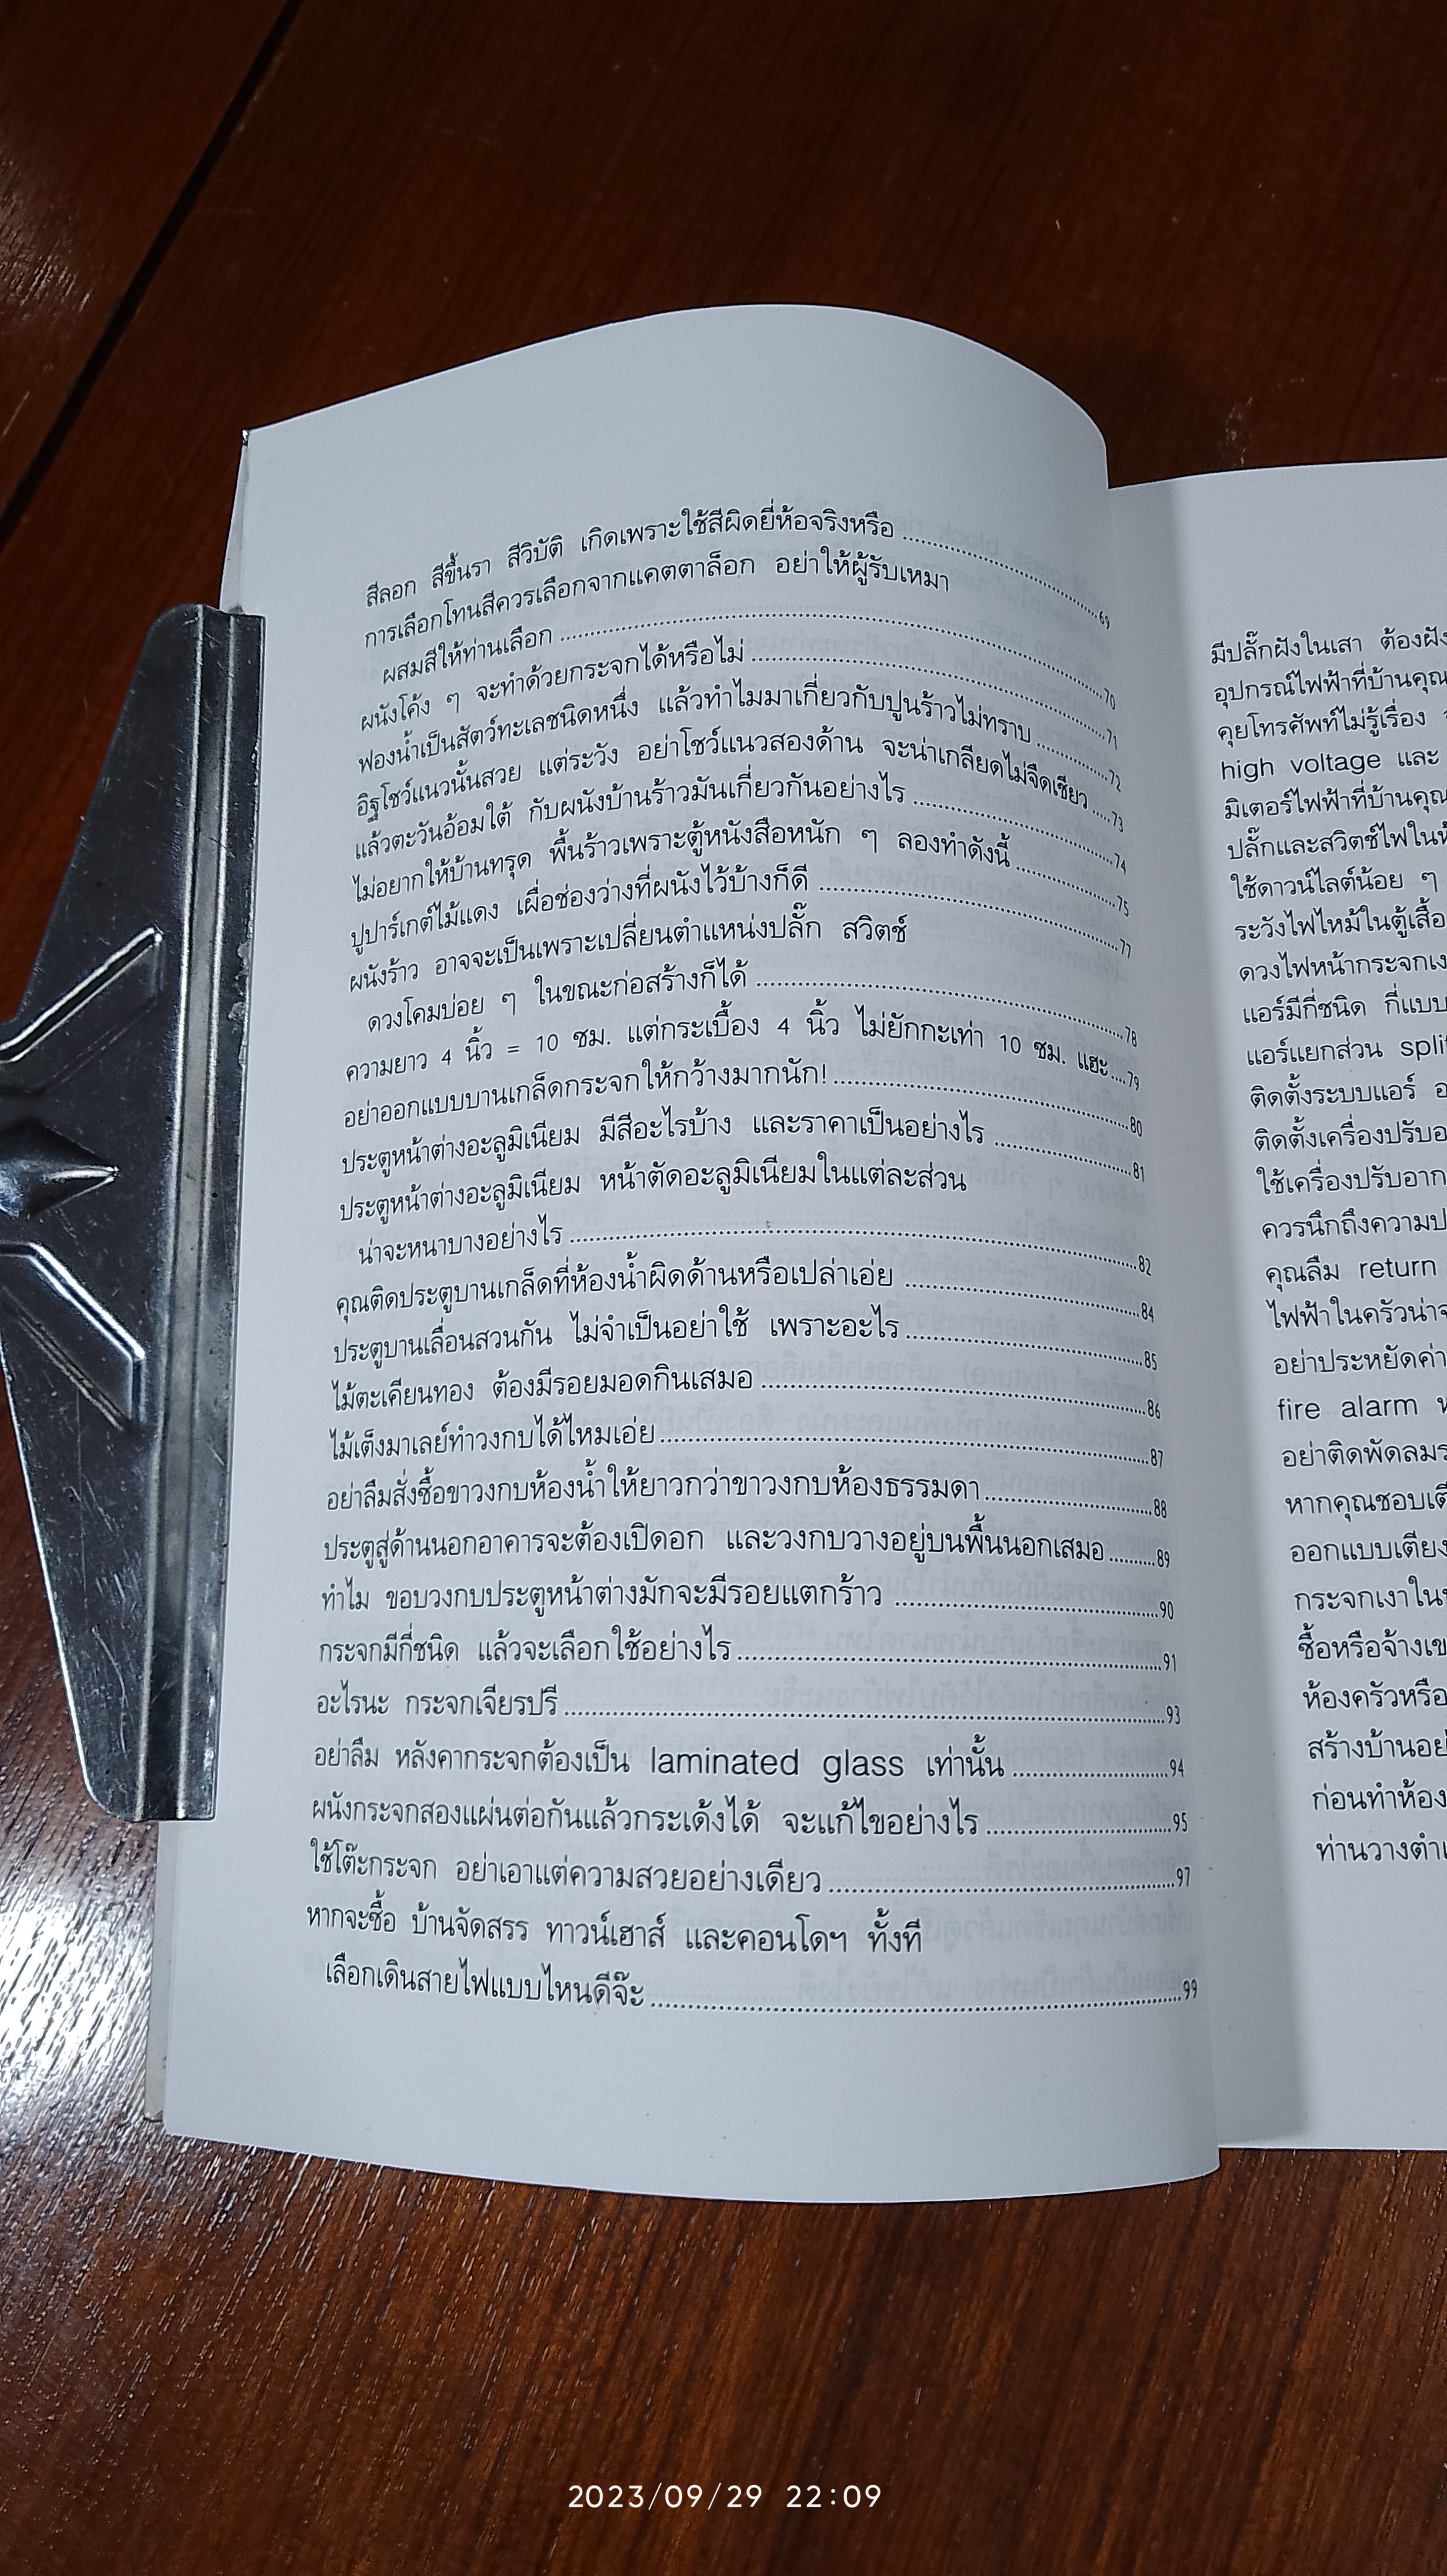 สีลอก สีขึ้นรา สีวิบัติ เกิดเพราะใช้สีผิดยี่ห้อจริงหรือ ........ 69
การเลือกโทนสีควรเลือกจากแคตตาล็อก อย่าให้ผู้รับเหมา
ผสมสีให้ท่านเลือก ........ 70
ผนังโค้ง ๆ จะทำด้วยกระจกได้หรือไม่ ........ 71
ฟองน้ำเป็นสัตว์ทะเลชนิดหนึ่ง แล้วทำไมมาเกี่ยวกับปูนร้าวไม่ทราบ ........ 72
อิฐโชว์แนวนั้นสวย แต่ระวัง อย่าโชว์แนวสองด้าน จะน่าเกลียดไม่จืดเชียว ..... 73
แล้วตะวันอ้อมใต้ กับผนังบ้านร้าวมันเกี่ยวกันอย่างไร ........ 74
ไม่อยากให้บ้านทรุด พื้นร้าวเพราะตู้หนังสือหนัก ๆ ลองทำดังนี้ ........ 75
ปูปาร์เกต์ไม้แดง เผื่อช่องว่างที่ผนังไว้บ้างก็ดี ........ 77
ผนังร้าว อาจจะเป็นเพราะเปลี่ยนตำแหน่งปลั๊ก สวิตช์
ดวงโคมบ่อย ๆ ในขณะก่อสร้างก็ได้ ........ 78
ความยาว 4 นิ้ว = 10 ซม. แต่กระเบื้อง 4 นิ้ว ไม่ยักกะเท่า 10 ซม. แฮะ.... 79
อย่าออกแบบบานเกล็ดกระจกให้กว้างมากนัก! ........ 80
ประตูหน้าต่างอะลูมิเนียม มีสีอะไรบ้าง และราคาเป็นอย่างไร ........ 81
ประตูหน้าต่างอะลูมิเนียม หน้าตัดอะลูมิเนียมในแต่ละส่วน
น่าจะหนาบางอย่างไร ........ 82
คุณติดประตูบานเกล็ดที่ห้องน้ำผิดด้านหรือเปล่าเอ่ย ........ 84
ประตูบานเลื่อนสวนกัน ไม่จำเป็นอย่าใช้ เพราะอะไร ........ 85
ไม้ตะเคียนทอง ต้องมีรอยมอดกินเสมอ ........ 86
ไม้เต็งมาเลย์ทำวงกบได้ไหมเอ่ย ........ 87
อย่าลืมสั่งซื้อขาวงกบห้องน้ำให้ยาวกว่าขาวงกบห้องธรรมดา ........ 88
ประตูสู่ด้านนอกอาคารจะต้องเปิดออก และวงกบวางอยู่บนพื้นนอกเสมอ ........ 89
ทำไม ขอบวงกบประตูหน้าต่างมักจะมีรอยแตกร้าว ........ 90
กระจกมีกี่ชนิด แล้วจะเลือกใช้อย่างไร ........ 91
อะไรนะ กระจกเจียรปรี ........ 93
อย่าลืม หลังคากระจกต้องเป็น laminated glass เท่านั้น ........ 94
ผนังกระจกสองแผ่นต่อกันแล้วกระเด้งได้ จะแก้ไขอย่างไร ........ 95
ใช้โต๊ะกระจก อย่าเอาแต่ความสวยอย่างเดียว ........ 97
หากจะซื้อ บ้านจัดสรร ทาวน์เฮาส์ และคอนโดฯ ทั้งที
เลือกเดินสายไฟแบบไหนดีจ๊ะ ........ 99
มีปลั๊กฝังในเสา ต้องฝัง
อุปกรณ์ไฟฟ้าที่บ้านคุณ
คุยโทรศัพท์ไม่รู้เรื่อง
high voltage และ
มิเตอร์ไฟฟ้าที่บ้านคุณ
ปลั๊กและสวิตช์ไฟใน
ใช้ดาวน์ไลต์น้อย ๆ
ระวังไฟไหม้ในตู้เสื้อ
ดวงไฟหน้ากระจกเ
แอร์มีกี่ชนิด กี่แบบ
แอร์แยกส่วน spli
ติดตั้งระบบแอร์ อ
ติดตั้งเครื่องปรับอ
ใช้เครื่องปรับอาก
ควรนึกถึงความป
คุณลืม return
ไฟฟ้าในครัวน่าจ
อย่าประหยัดค่า
fire alarm
อย่าติดพัดลม
หากคุณชอบเตี
ออกแบบเตียง
กระจกเงาใน
ซื้อหรือจ้างเข
ห้องครัวหรือ
สร้างบ้านอย่
ก่อนทำห้อง
ท่านวางตำแ
2023/09/29 22:09